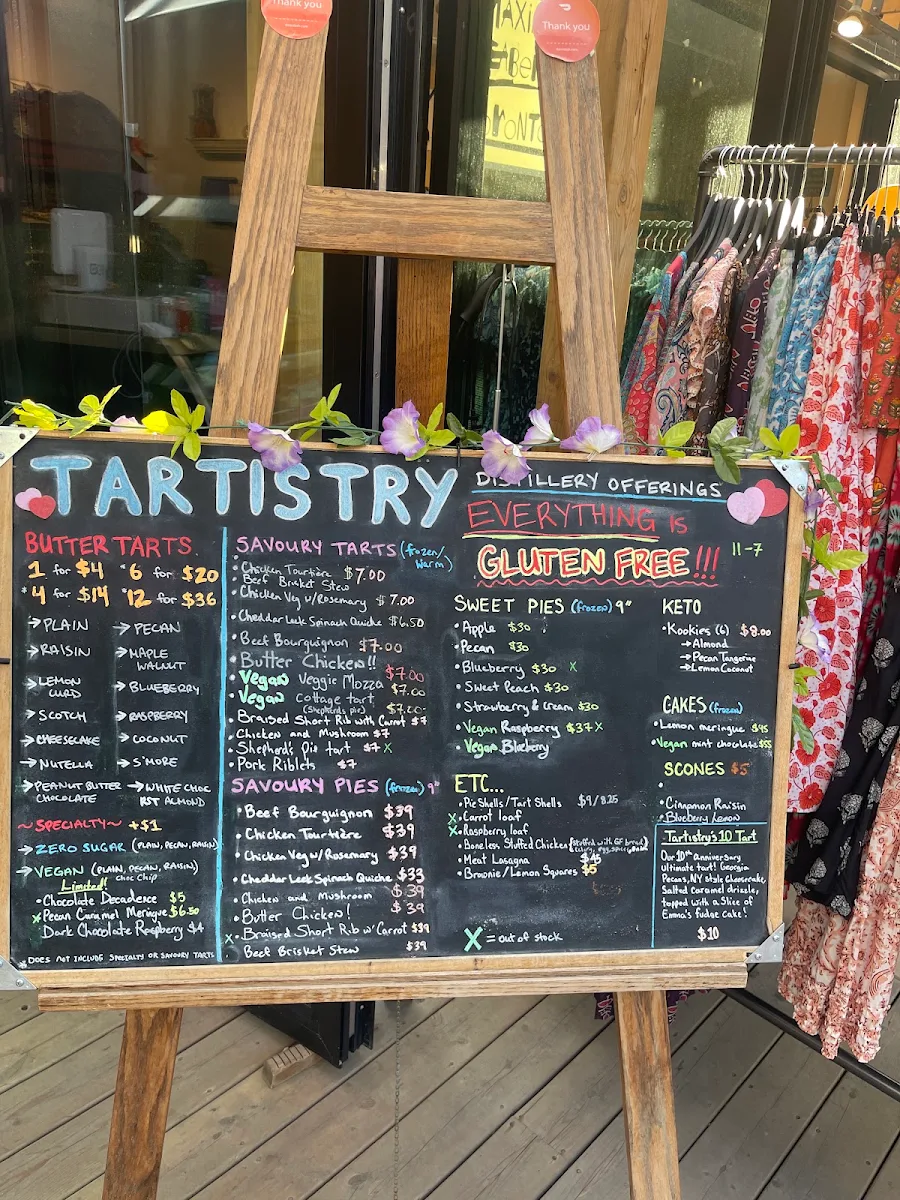 Thank you
Thank you
MAXi
ORONTO
TARTISTRY
DISTILLERY OFFERINGS
EVERYTHING is
GLUTEN FREE!!!
11-7
BUTTER TARTS
1 for $4 6 for $20
4 for $14 12 for $36
→ PLAIN
→ PECAN
→ RAISIN
→ MAPLE WALNUT
→ LEMON CURD
→ BLUEBERRY
→ SCOTCH
→ RASPBERRY
→ CHEESECAKE
→ COCONUT
→ NUTELLA
→ S'MORE
→ PEANUT BUTTER CHOCOLATE
→ WHITE CHOC RST ALMOND
~SPECIALTY~ +$1
→ ZERO SUGAR (PLAIN, PECAN, RAISIN)
→ VEGAN (PLAIN, PECAN, RAISIN)
Choc Chip
Limited!
• Chocolate Decadence $5
x Pecan Caramel Meringue $6.50
Dark Chocolate Raspberry $4
DOES NOT INCLUDE SPECIALTY OR SAVOURY TARTS
SAVOURY TARTS (frozen/warm)
• Chicken Tourtière $7.00
Beef Brisket Stew
• Chicken Veg w/Rosemary $7.00
• Cheddar Leek Spinach Quiche $6.50
• Beef Bourguignon $7.00
• Butter Chicken!!
• Vegan Veggie Mozza $7.00
• Vegan Cottage tart $7.00
(Shepherds pie) $7.20
• Braised Short Rib with Carrot $7
• Chicken and Mushroom $7
• Shepherd's Pie tart $7 x
• Pork Riblets $7
SAVOURY PIES (frozen) 9"
• Beef Bourguignon $39
• Chicken Tourtière $39
• Chicken Veg w/Rosemary $39
• Cheddar Leek Spinach Quiche $33
• Chicken and Mushroom $39
• Butter Chicken! $39
x • Braised Short Rib w/ Carrot $39
• Beef Brisket Stew $39
SWEET PIES (frozen) 9"
• Apple $30
• Pecan $30
• Blueberry $30 x
• Sweet Peach $30
• Strawberry & Cream $30
• Vegan Raspberry $37 x
• Vegan Blueberry
ETC...
• Pie Shells / Tart Shells $9/8.25
x • Carrot loaf
x • Raspberry loaf
• Boneless Stuffed Chicken (Stuffed with GF bread,
• Meat Lasagna $45
• Brownie/Lemon Squares $5
X = out of stock
KETO
• Kookies (6) $8.00
→ Almond
→ Pecan Tangerine
→ Lemon Coconut
CAKES (frozen)
• Lemon meringue $45
• Vegan mint chocolate $55
SCONES $5
•
• Cinnamon Raisin
• Blueberry Lemon
Tartistry's 10 Tart
Our 10th anniversary
ultimate tart! Georgia
Pecans, NY style cheesecake,
Salted caramel drizzle,
topped with a slice of
Emma's fudge cake!
$10